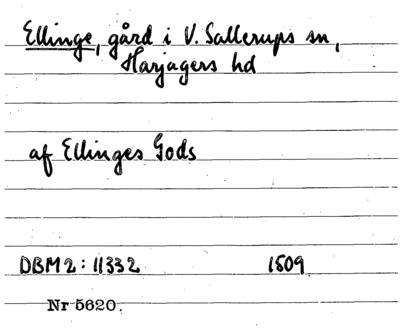 Ellinge, gård i V. Sallerups sn,
Harjagers hd
af Ellinges Gods
DBM 2: 11332 1509
Nr 5620.